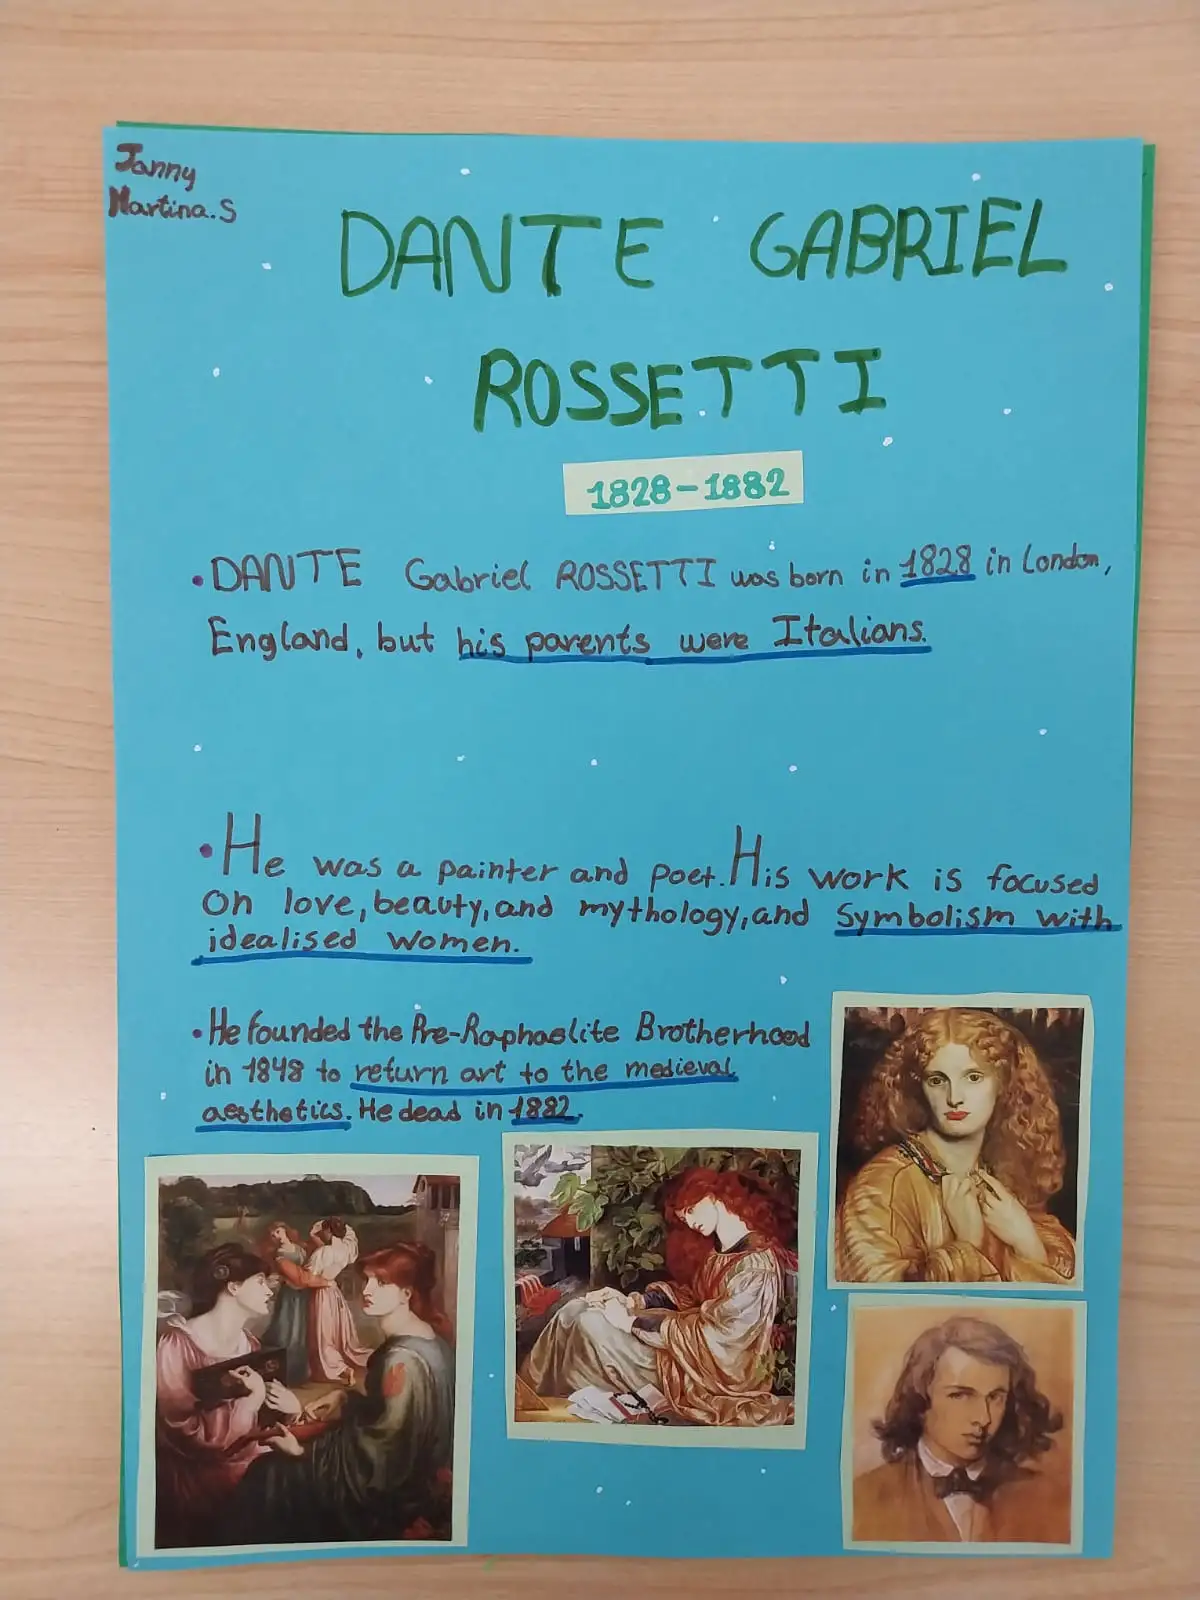 Janny
Martina.S
DANTE GABRIEL
ROSSETTI
1828-1882
• DANTE Gabriel ROSSETTI was born in 1828 in London,
England, but his parents were Italians.
• He was a painter and poet. His work is focused
On love, beauty, and mythology, and Symbolism with
idealised women.
• He founded the Pre-Raphaelite Brotherhood
in 1848 to return art to the medieval
aesthetics. He dead in 1882.